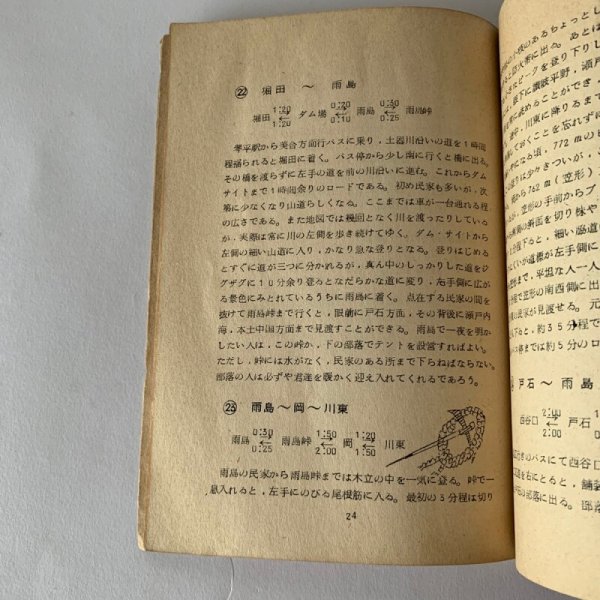 ㉒ 堀田 ～ 雨島
1:20 0:20 0:30
堀田 ⇄ ダム場 ⇄ 雨島 ⇄ 雨島峠
1:20 0:10 0:25
琴平駅から美合方面行バスに乗り，土器川沿いの道を1時間
程揺られると堀田に着く。バス停から少し南に行くと橋に出る。
その橋を渡らずに左手の道を前の川沿いに進む。これからダム
サイトまで1時間余りのロードである。初め民家も多いが，次
第に少なくなり山道らしくなる。ここまでは車が一台通れる程
の広さである。また地図では幾回となく川を渡ったりしている
が，実際は常に川の左側を歩き続けてゆく。ダム・サイトから
左側の細い山道に入り，かなり急な登りとなる。登りはじめる
とすぐに道が三つに分かれるが，真ん中のしっかりした道をジ
グザグに10分余り登るとなだらかな道に変り，右手側に広が
る景色にみとれているうちに雨島に着く。点在する民家の間を
抜けて雨島峠まで行くと，眼前に戸石方面，その背後に瀬戸内
海，本土中国方面まで見渡すことができる。雨島で一夜を明か
したい人は，この峠か，下の部落でテントを設営すればよい。
ただし，峠には水がなく，民家のある所まで下らねばならない。
部落の人は必ずや君達を暖かく迎え入れてくれるであろう。
㉓ 雨島～岡～川東
0:30 1:50 1:20
雨島 ⇄ 雨島峠 ⇄ 岡 ⇄ 川東
0:25 2:00 1:50
雨島の民家から雨島峠までは木立の中を一気に登る。峠で一
息入れると，左手にのびる尾根筋に入る。最初の5分程は切り
24
のあるちょっとし
防火帯に出る。あとは
ピークを登り下りし
下に讃岐平野，瀬戸
に眺めることができ，
川東に降りるまで
しておくことを忘れず
なる頃，772mの
分々きついが，
762m(笠形)
笠形の手前からブ
の斜面を切り妹や
下ると，細い脇道
が道標が左手側に
まで，平坦な人一人
で笠形の南西側に出
民家が見渡せる。元
ると，約35分程で
までは約5分のロ
戸石～雨島
2:00
西谷口 ⇄ 戸石
2:00
きのバスにて西谷口
を右にとると，舗装
の部落に出る。部落